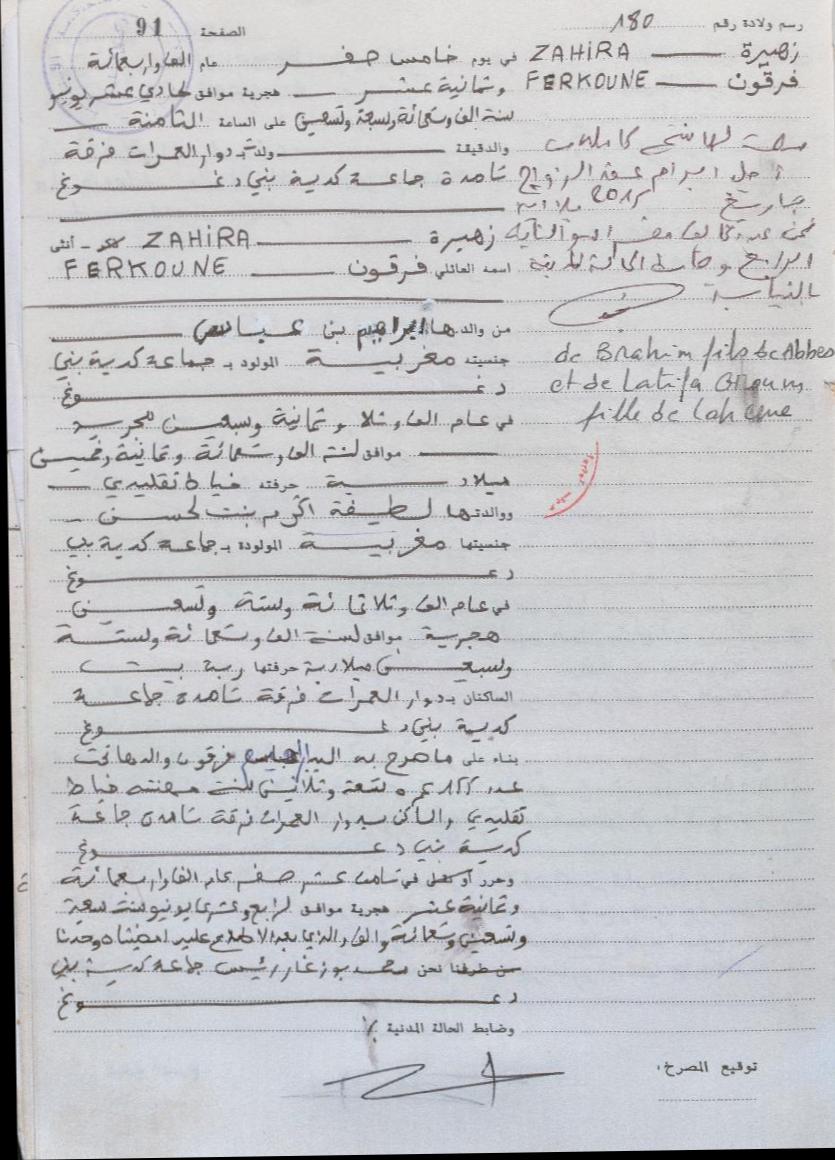 رسم ولادة رقم 180
الصفحة 91
زهيرة ZAHIRA
فرقون FERKOUNE
في يوم خامس صفر عام ألف وأربعمائة
وثمانية عشر هجرية موافق حادي عشر يونيو
سنة ألف وتسعمائة وسبعة وتسعين على الساعة الثامنة
والدقيقة ولدت بدوار العمرات فرقة
تامدة جماعة كدية بني دغوغ
زهيرة ZAHIRA أنثى
اسمه العائلي فرقون FERKOUNE
من والدها ابراهيم بن عباس
جنسيته مغربية المولود بـ جماعة كدية بني
دغوغ
في عام ألف وثلا وثمانية وسبعين هجرية
موافق لسنة ألف وتسعمائة وثمانية وخمسين
ميلادية حرفته خياط تقليدي
ووالدتها لطيفة اكروم بنت لحسن
جنسيتها مغربية المولودة بـ جماعة كدية بني
دغوغ
في عام ألف وثلاثمائة وستة وتسعين
هجرية موافق لسنة ألف وتسعمائة وستة
وسبعين ميلادية حرفتها ربة بيت
الساكنان بـ دوار العمرات فرقة تامدة جماعة
كدية بني دغوغ
بناء على ما صرح به السيد ابراهيم فرقون والدها
عمره تسعة وثلاثين سنة مهنته خياط
تقليدي والساكن بدوار العمرات فرقة تامدة جماعة
كدية بني دغوغ
وحرر أو سجل في ثامن عشر صفر عام ألف وأربعمائة
وثمانية عشر هجرية موافق رابع وعشرين يونيو سنة سبعة
وتسعين وتسعمائة وألف والذي بعد الاطلاع عليه امضيناه وحدنا
من طرفنا نحن محمد بوزغار رئيس جماعة كدية بني
دغوغ
وضابط الحالة المدنية
توقيع المصرح:
سلمت لها نسخة كاملة
من أجل ابرام عقد الزواج
بتاريخ 2015
de Brahim fils de Abbes
et de Latifa
fille de Lahcene